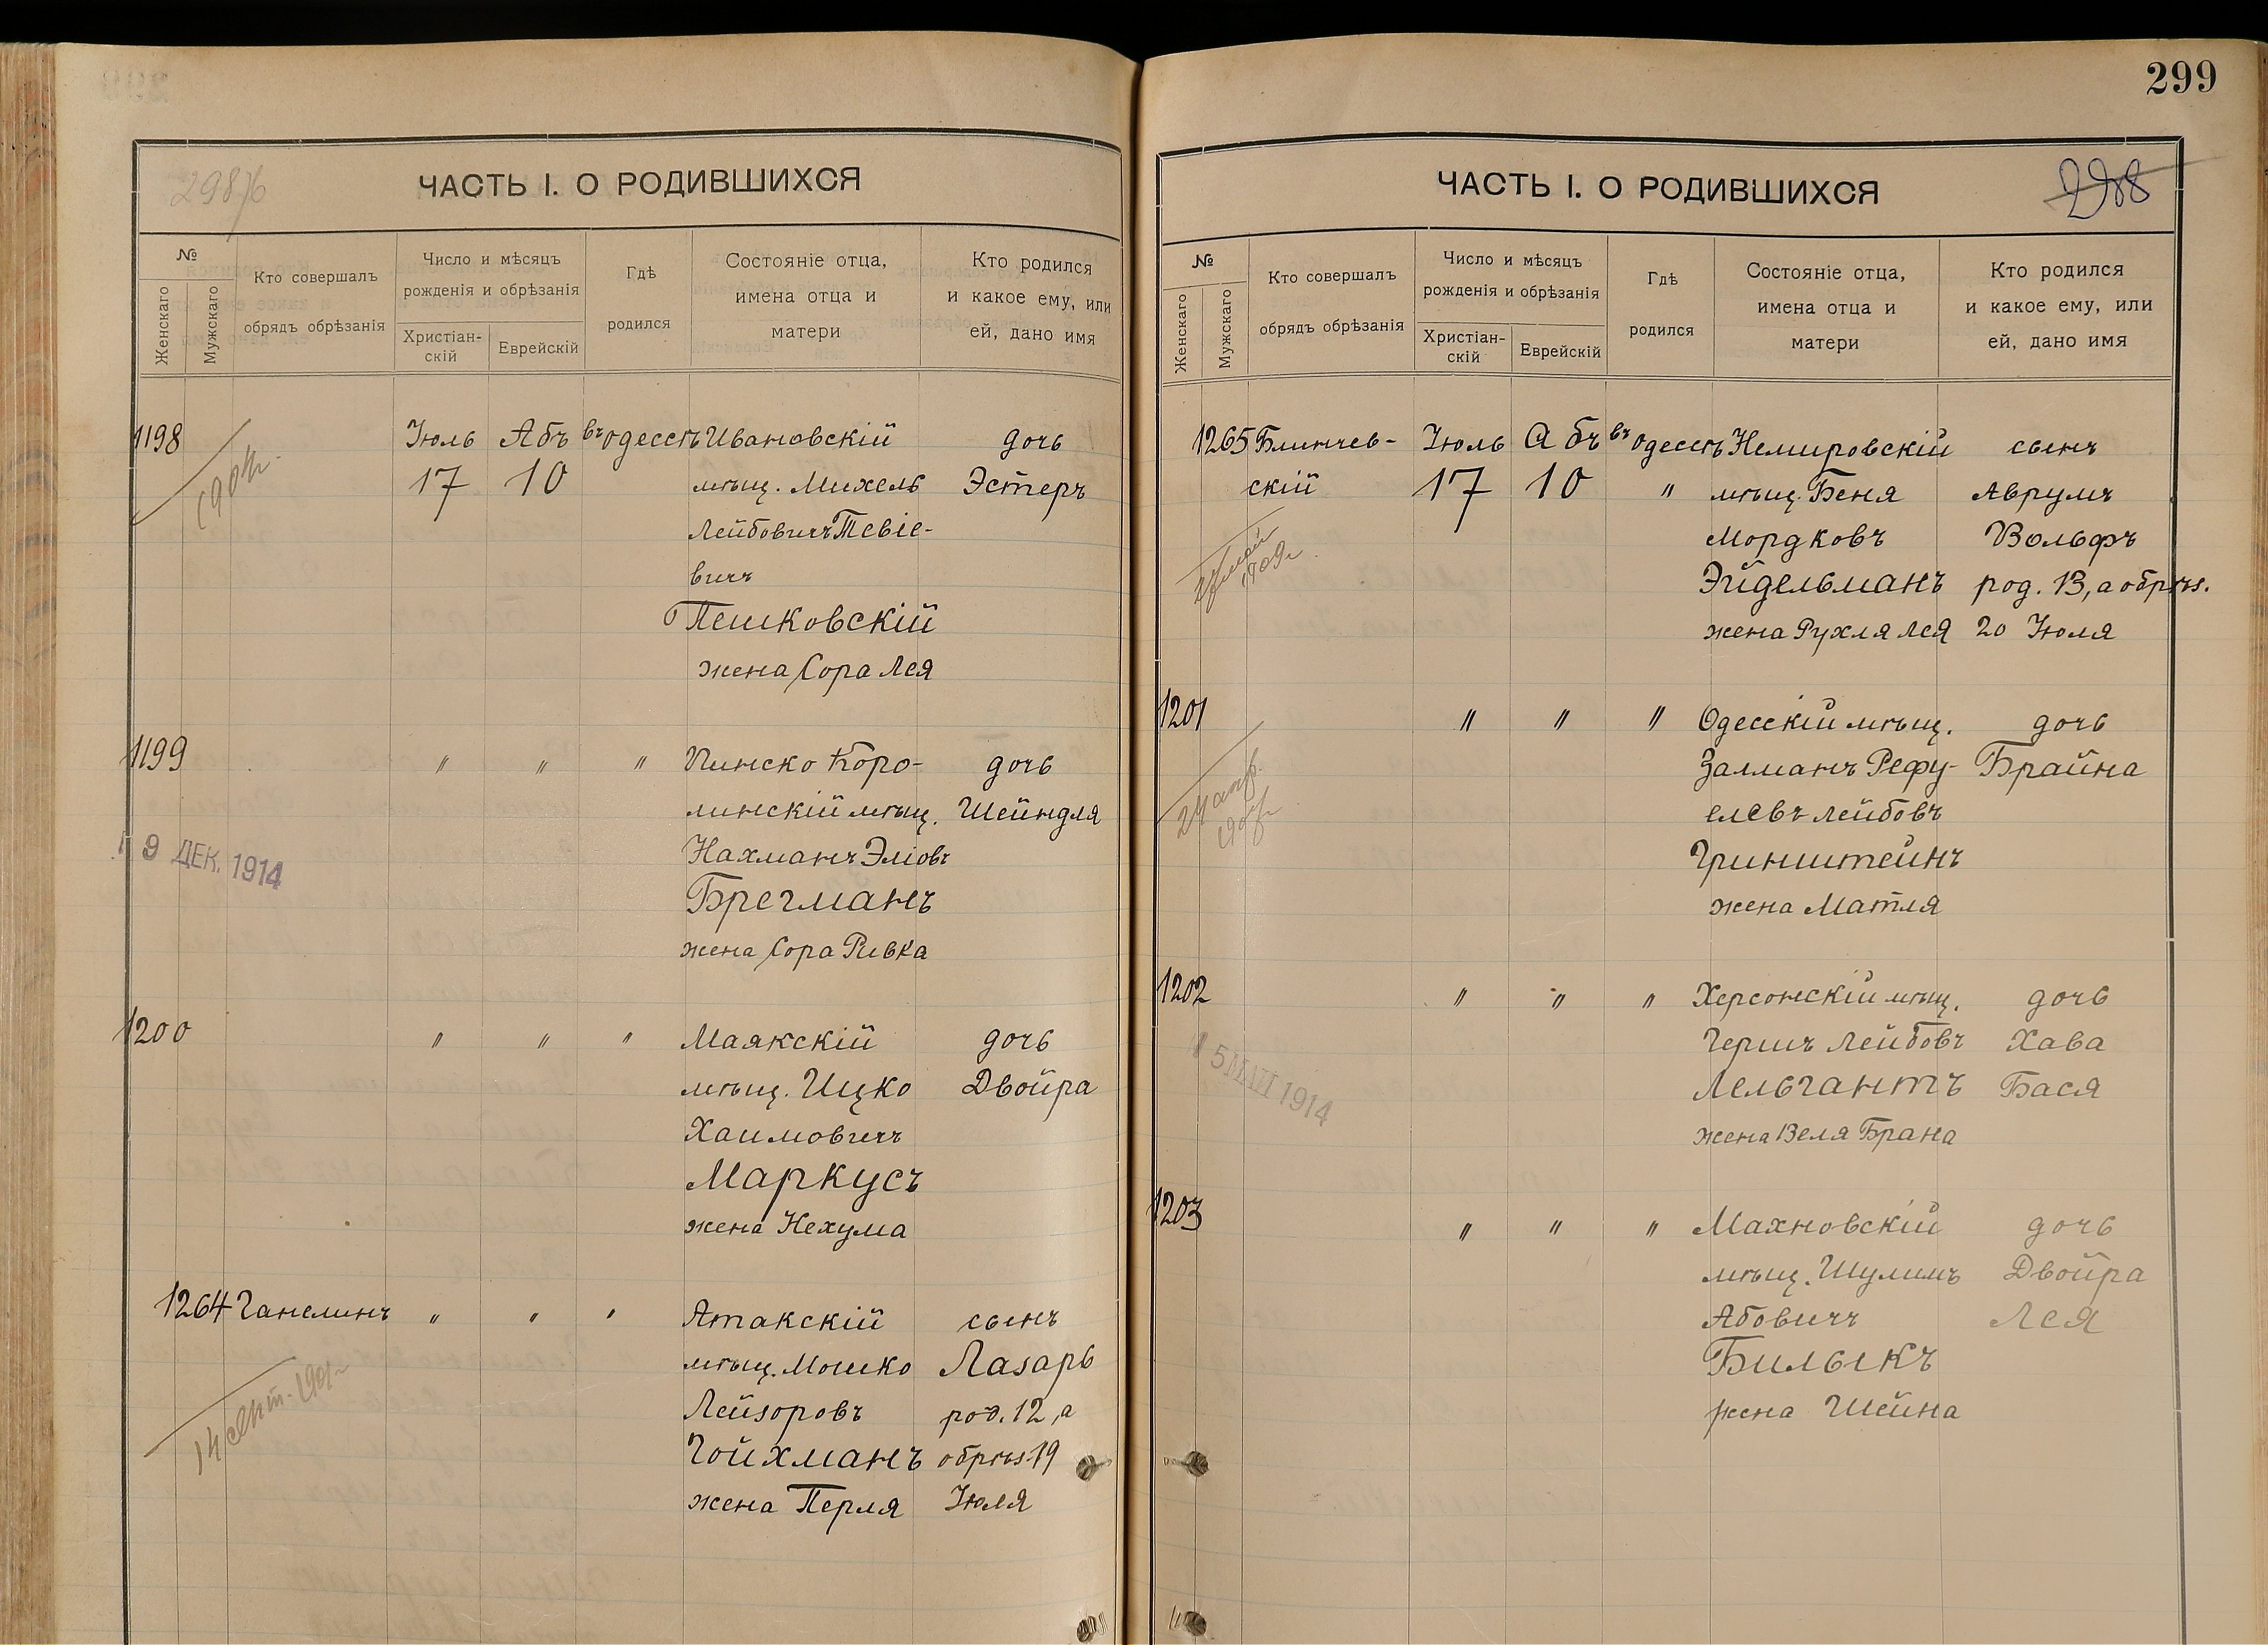 299
298/б
ЧАСТЬ I. О РОДИВШИХСЯ
№
Женскаго
Мужскаго
Кто совершалъ
обрядъ обрѣзанія
Число и мѣсяцъ
рожденія и обрѣзанія
Христіан-
скій
Еврейскій
Гдѣ
родился
Состояніе отца,
имена отца и
матери
Кто родился
и какое ему, или
ей, дано имя
1198 Іюль Абъ въ Одессѣ Ивановскій дочь
17 10 мѣщ. Михель Эстеръ
Лейбовичъ Тевіе-
вичъ
Пешковскій
жена Сора Лея
1199 " " " Пинско Коро- дочь
линскій мѣщ. Шейндля
Нахманъ Эліовъ
9 ДЕК. 1914
Брегманъ
жена Сора Ривка
1200 " " " Маякскій дочь
мѣщ. Ицко Двойра
Хаимовичъ
Маркусъ
жена Нехума
1264 Ганелинъ " " " Атакскій сынъ
мѣщ. Мошко Лазарь
14 сент. 1901 г
Лейзоровъ род. 12, а
Гойхманъ обрѣз. 19
жена Перля Іюля
ЧАСТЬ I. О РОДИВШИХСЯ
298
№
Женскаго
Мужскаго
Кто совершалъ
обрядъ обрѣзанія
Число и мѣсяцъ
рожденія и обрѣзанія
Христіан-
скій
Еврейскій
Гдѣ
родился
Состояніе отца,
имена отца и
матери
Кто родился
и какое ему, или
ей, дано имя
1265 Блинчев- Іюль Абъ въ Одессѣ Немировскій сынъ
скій 17 10 " мѣщ. Беня Аврумъ
Мордковъ Вольфъ
1909 г
Эйдельманъ род. 13, а обрѣз.
жена Рухля Лея 20 Іюля
1201 " " " Одесскій мѣщ. дочь
Залманъ Рефу- Брайна
елевъ Лейбовъ
Гринштейнъ
жена Матля
1202 " " " Херсонскій мѣщ. дочь
Гершъ Лейбовъ Хава
5 МАЙ 1914
Лельгантъ Бася
жена Веля Брана
1203 " " " Махновскій дочь
мѣщ. Шулимъ Двойра
Абовичъ Лея
Билыкъ
жена Шейна